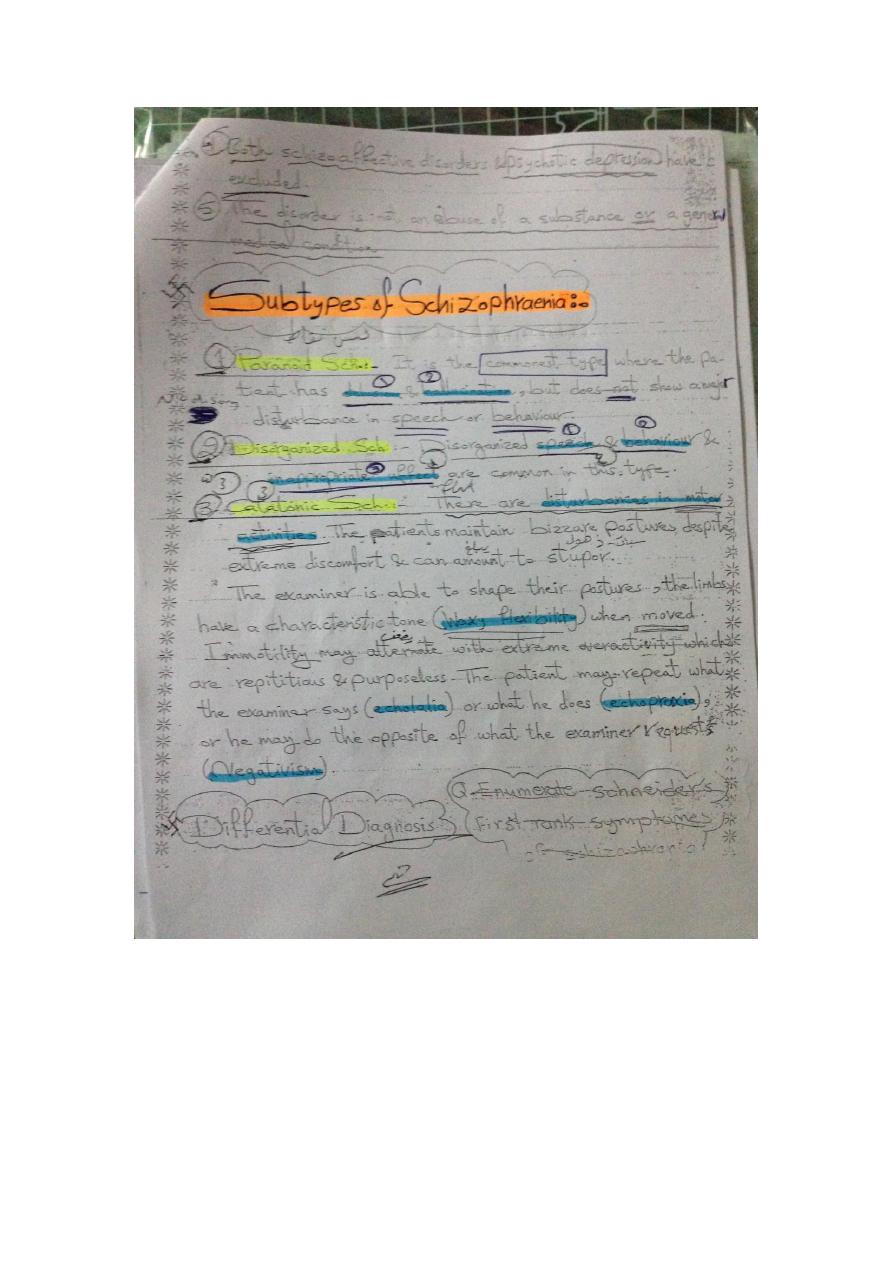 ④ Both schizoaffective disorders & psychotic depression have
excluded.
⑤ The disorder is not an abuse of a substance or a general
medical condition
Subtypes of Schizophraenia:
① Paranoid Sch.- It is the commonest type where the pa-
tient has delusion ① & hallucination ②, but does not show a major
disturbance in speech or behaviour.
② Disorganized Sch :- Disorganized speech ① & behaviour ② &
③ inappropriate affect are common in this type.
flat
③ Catatonic Sch.:- There are disturbances in motor
activities. The patients maintain bizzare postures, despite
extreme discomfort & can amount to stupor.
* The examiner is able to shape their postures, the limbs
have a characteristic tone (Waxy flexibility) when moved.
Immotility may alternate with extreme overactivity which
are repititious & purposeless. The patient may repeat what
the examiner says (echolalia) or what he does (echopraxia),
or he may do the opposite of what the examiner requests
(Negativism).
Q-Enumerate schneider's
Differential Diagnosis: First rank symptomes
of schizophrenia